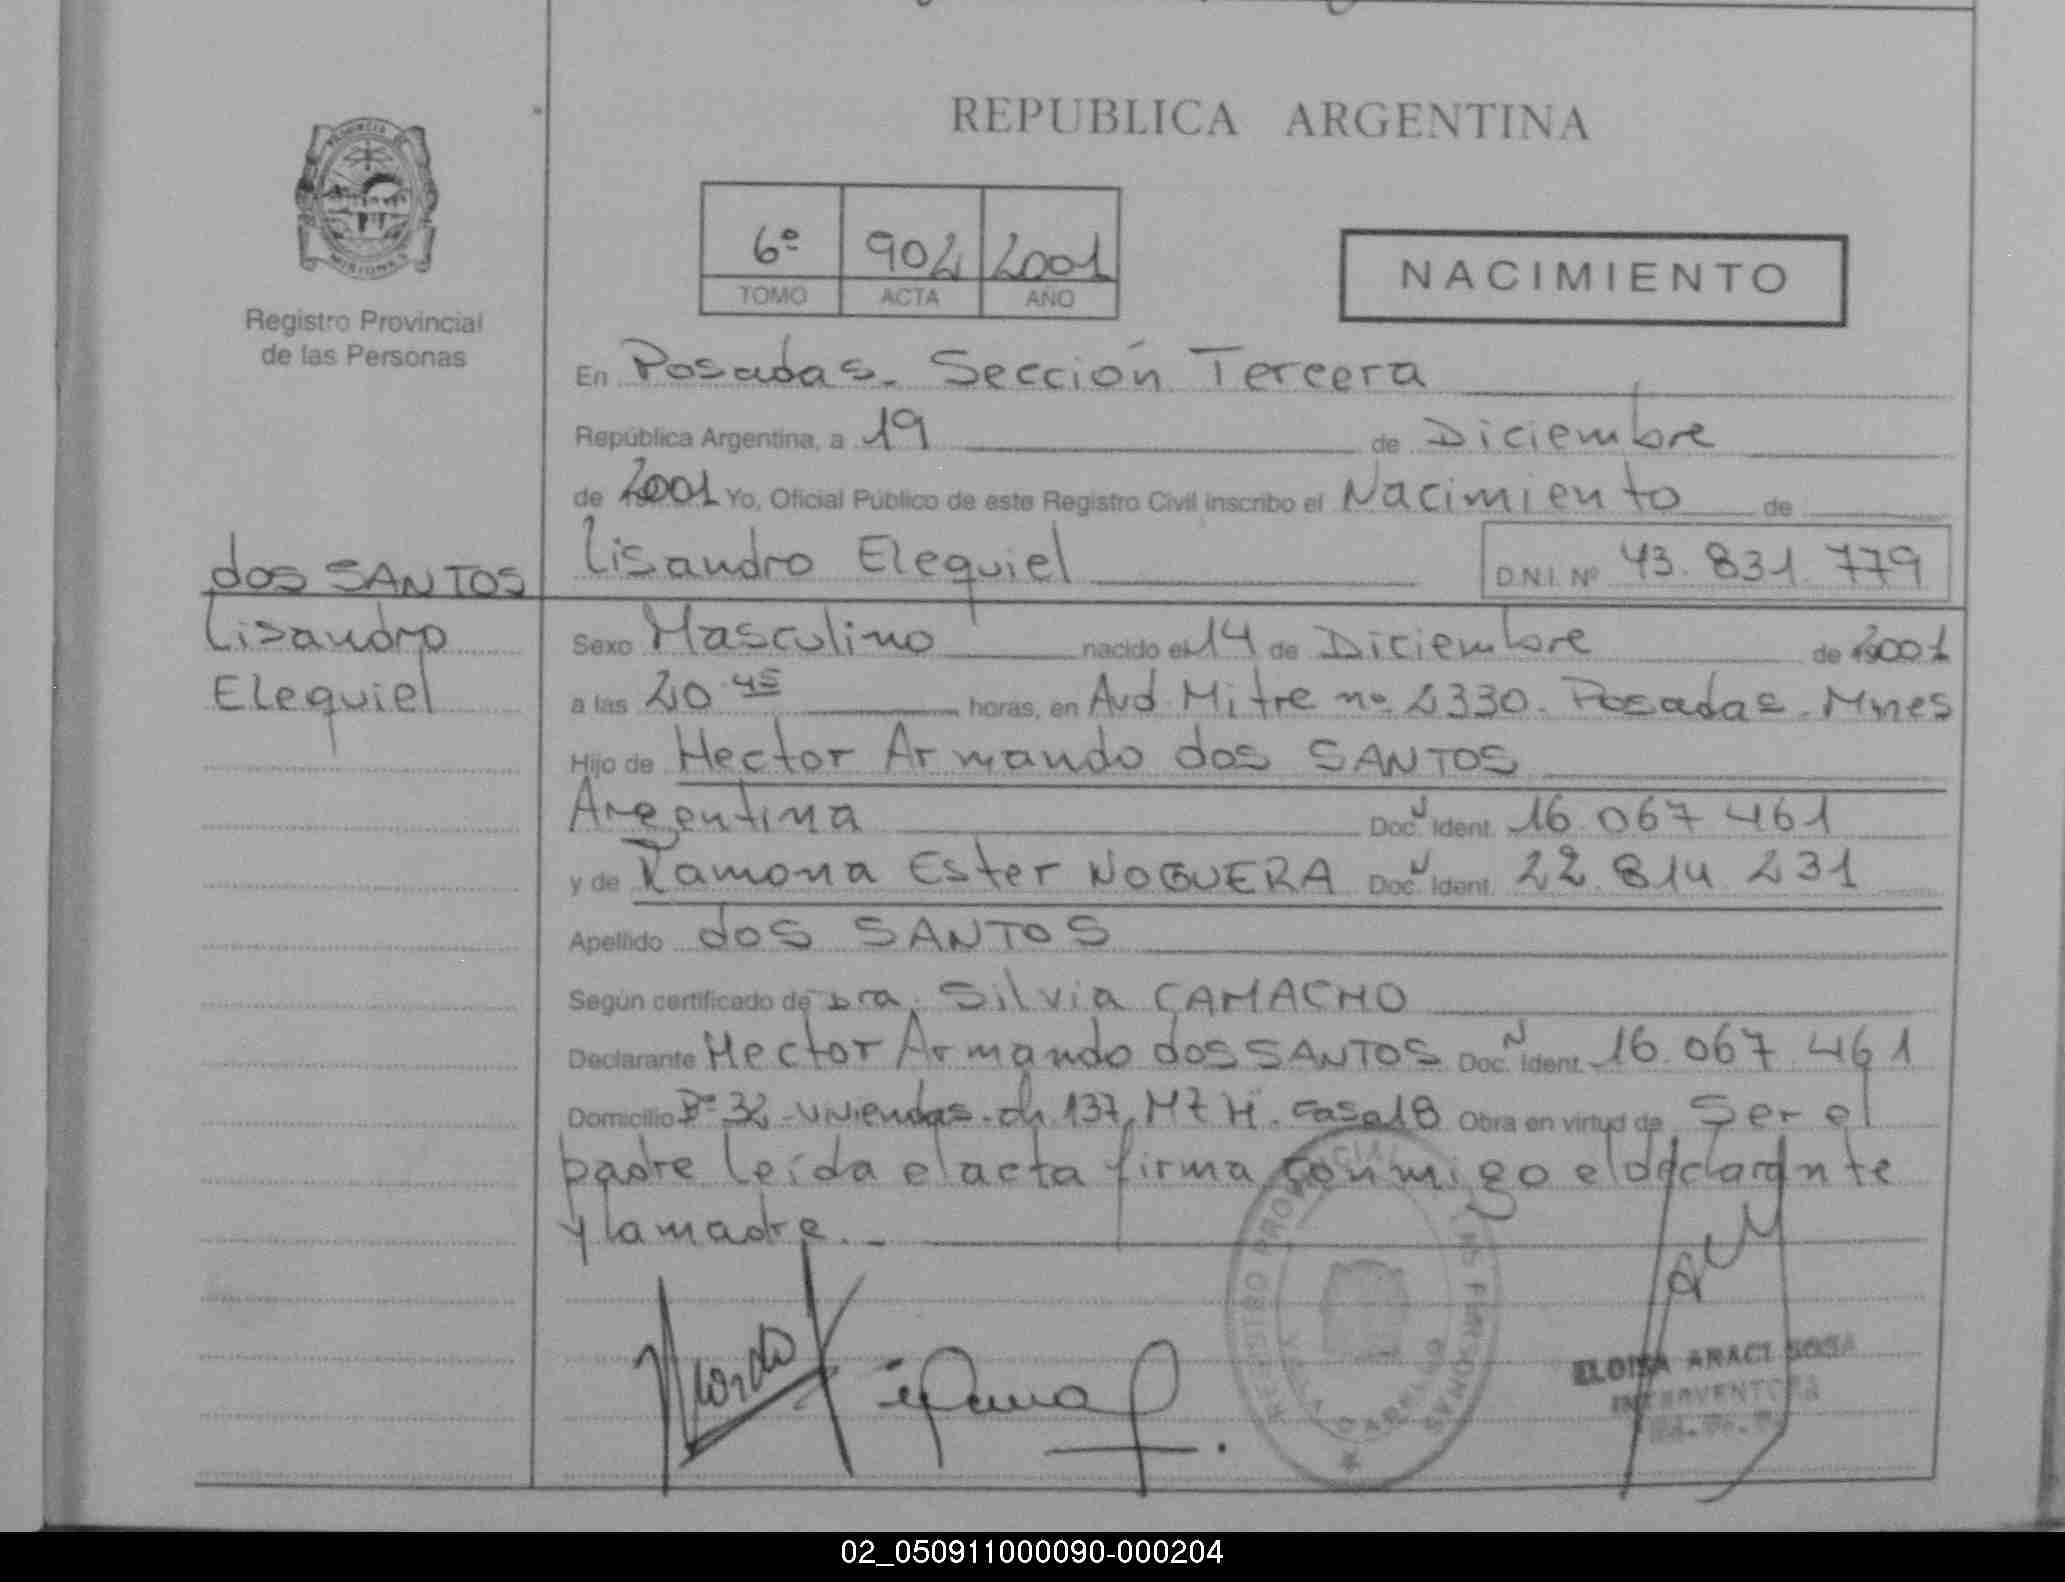 REPUBLICA ARGENTINA
6º 902 2001
TOMO ACTA AÑO
NACIMIENTO
Registro Provincial
de las Personas
En Posadas. Sección Tercera
República Argentina, a 19 de Diciembre
de 2001 Yo, Oficial Público de este Registro Civil inscribo el Nacimiento de
Lisandro Elequiel D.N.I. Nº 43.831.779
dos SANTOS
Lisandro
Elequiel
Sexo Masculino nacido el 14 de Diciembre de 2001
a las 20.45 horas, en Avd. Mitre nº 2330. Posadas. Mnes
Hijo de Hector Armando dos SANTOS
Argentina Doc. Ident. 16.067.461
y de Ramona Ester NOGUERA Doc. Ident. 22.814.231
Apellido dos SANTOS
Según certificado de Dra. Silvia CAMACHO
Declarante Hector Armando dos SANTOS Doc. Ident. 16.067.461
Domicilio Bº 32 viviendas. ch. 137, Mz H. casa 18 Obra en virtud de Ser el
padre leída el acta firma conmigo el declarante
y la madre.
REGISTRO PROVINCIAL PERSONAS
ELOISA ARACI SOSA
INTERVENTORA
02_050911000090-000204